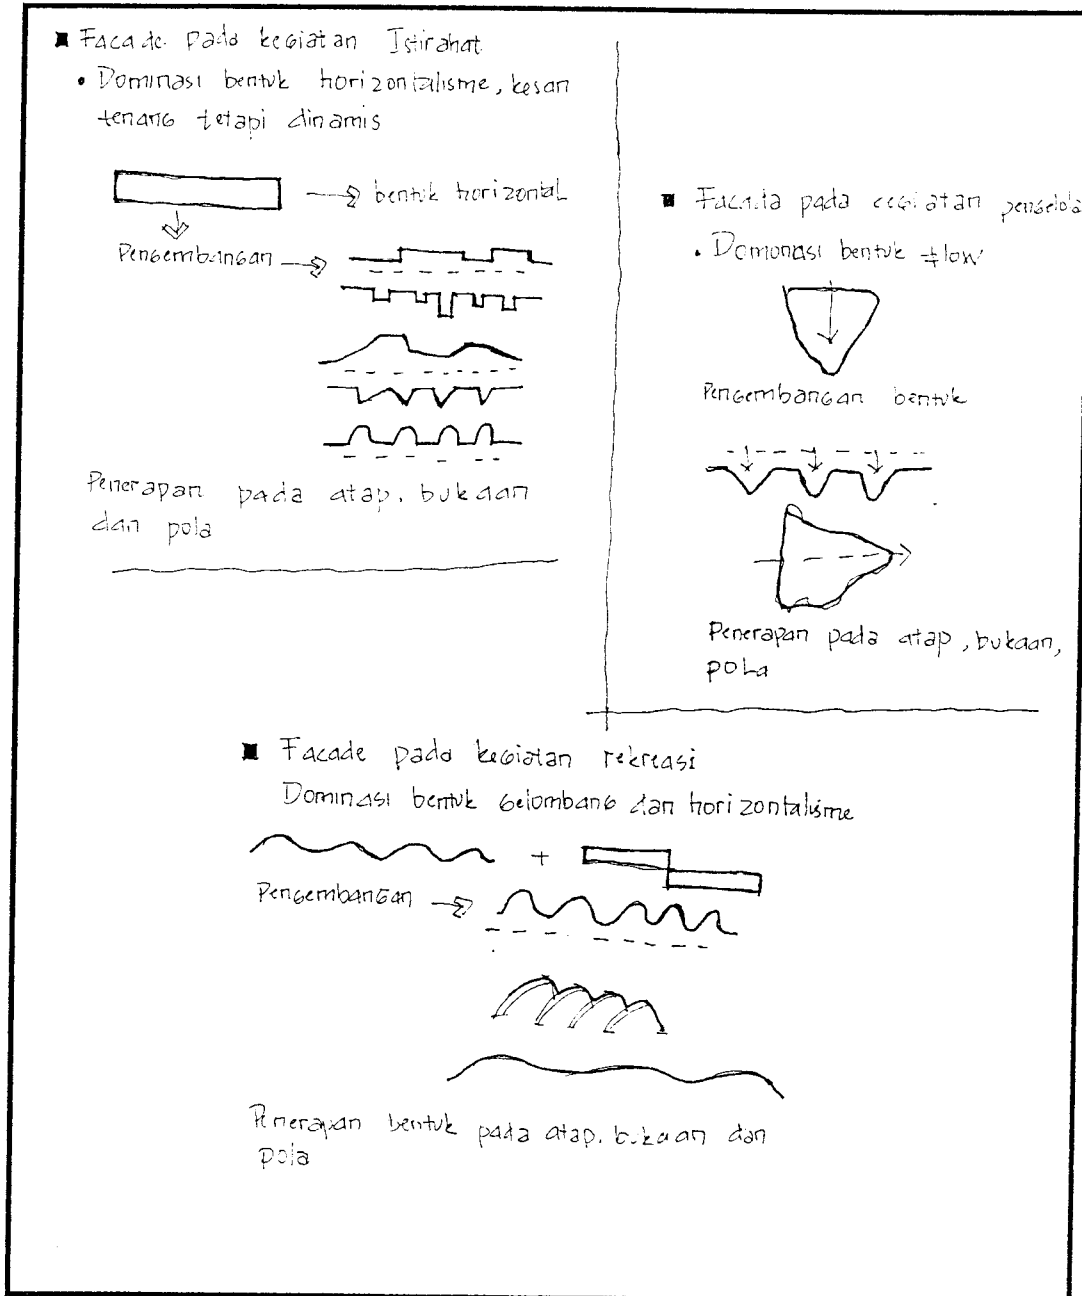 Facade pada kegiatan Istirahat
• Dominasi bentuk horizontalisme, kesan
tenang tetapi dinamis
bentuk horizontal
Pengembangan
Penerapan pada atap, bukaan
dan pola
Facada pada kegiatan pengelola
• Domonasi bentuk flow
Pengembangan bentuk
Penerapan pada atap, bukaan,
pola
Facade pada kegiatan rekreasi
Dominasi bentuk gelombang dan horizontalisme
+
Pengembangan
Penerapan bentuk pada atap, bukaan dan
pola